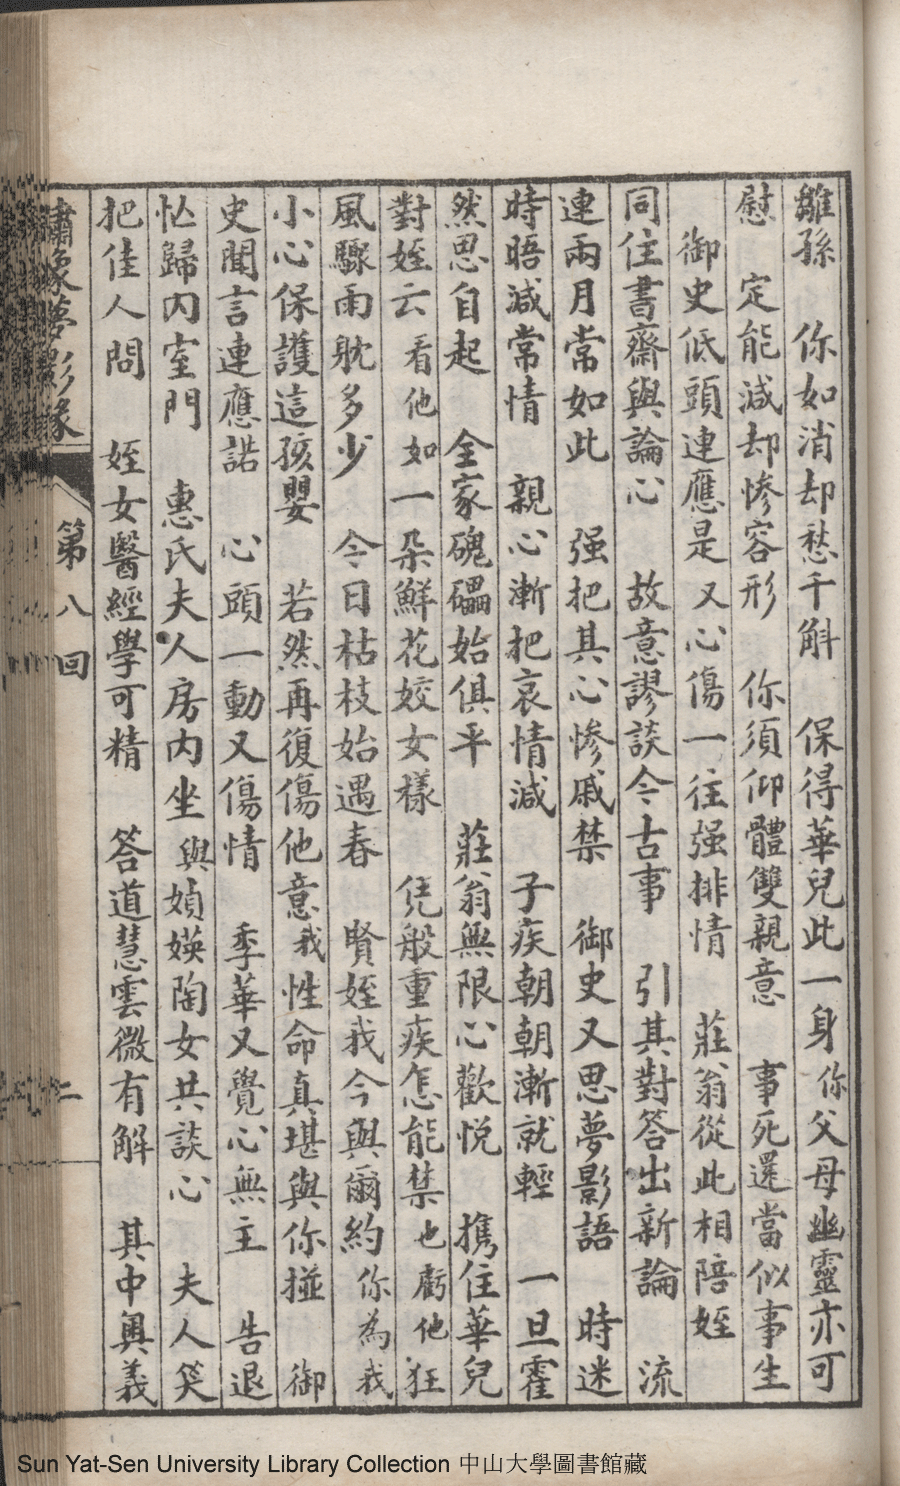 雛孫　你如消却愁千斛　保得華兒此一身　你父母幽靈亦可
慰　定能減却慘容形　你須仰體雙親意　事死還當似事生
御史低頭連應是　又心傷一往强排情　莊翁從此相陪姪
同住書齋與論心　故意謬談今古事　引其對答出新論　流
連兩月常如此　强把其心慘戚禁　御史又思夢影語　時迷
時晤減常情　親心漸把哀情減　子疾朝朝漸就輕　一旦霍
然思自起　全家磈礧始俱平　莊翁無限心歡悅　携住華兒
對姪云　看他如一朵鮮花姣女樣　凭般重疾怎能禁　也虧他狂
風驟雨躭多少　今日枯枝始遇春　賢姪我今與爾約　你為我
小心保護這孩嬰　若然再復傷他意　我性命真堪與你掽　御
史聞言連應諾　心頭一動又傷情　季華又覺心無主　告退
忙歸內室門　惠氏夫人房內坐　與媜媖陶女共談心　夫人笑
把佳人問　姪女醫經學可精　答道慧雲微有解　其中奧義
繡像夢影緣　第八回　二
Sun Yat-Sen University Library Collection 中山大學圖書館藏